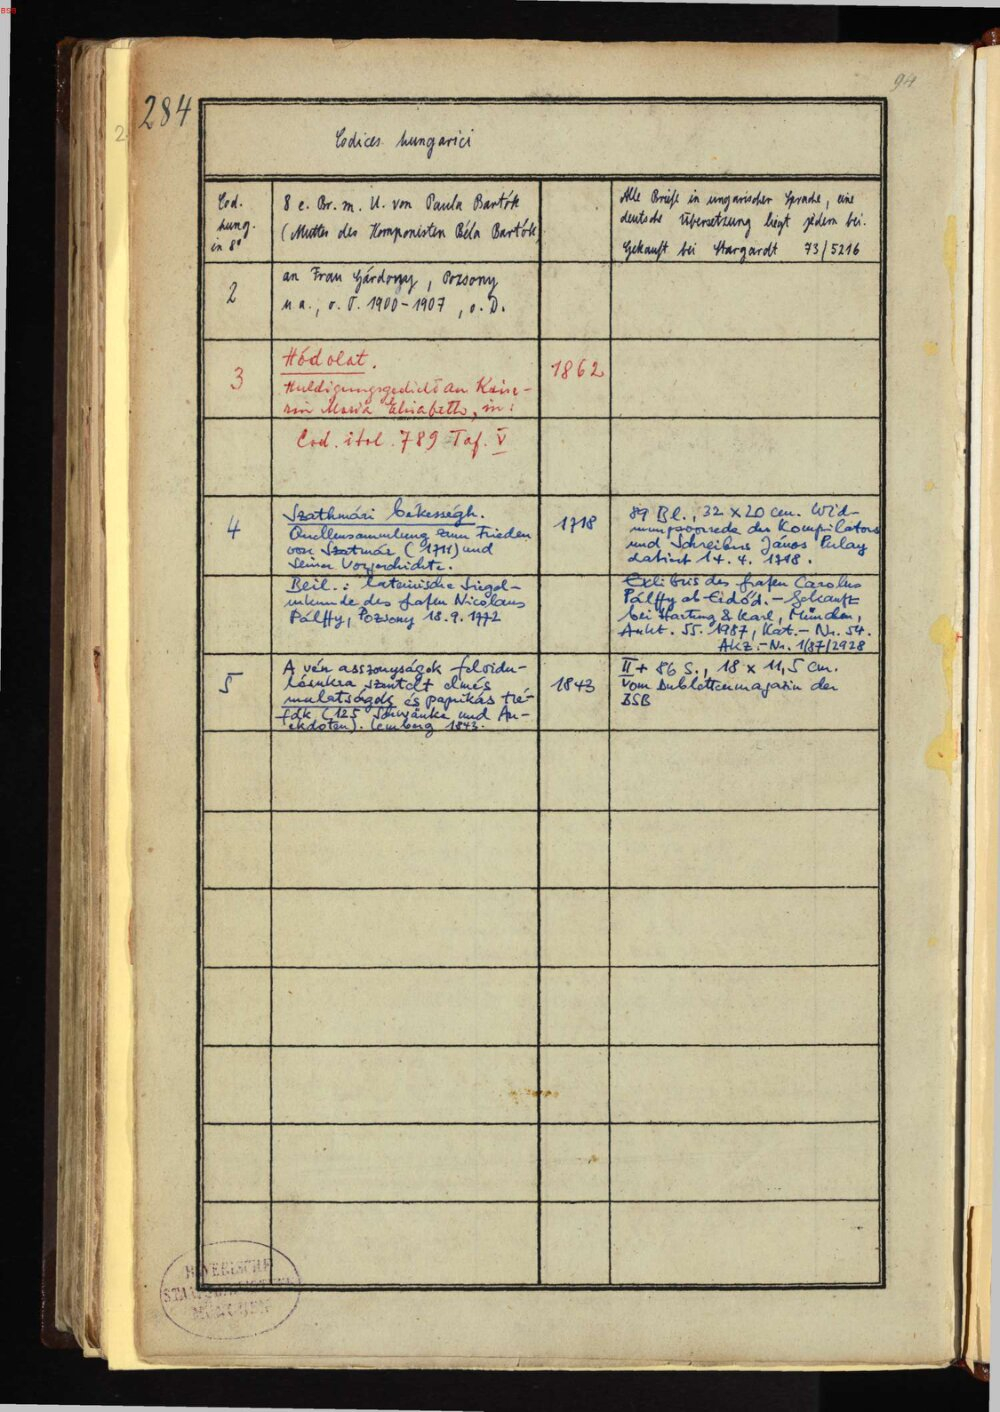 BSB
94
284
2.
Codices hungarici
Cod.
hung.
in 8°
8 e. Br. m. U. von Paula Bartók
(Mutter des Komponisten Béla Bartók)
Alle Briefe in ungarischer Sprache, eine
deutsche Übersetzung liegt jedem bei.
Gekauft bei Stargardt 73/5216
2
an Frau Gárdonyi, Pozsony
u a., o. O. 1900-1907, o. D.
3
Hódolat.
Huldigungsgedicht an Kaise-
rin Maria Elisabeth, in:
1862
Cod. ital. 789 Taf. V
4
Szathmári békességh.
Quellensammlung zum Frieden
von Szatmár (1711) und
seiner Vorgeschichte.
1718
89 Bl., 32 x 20 cm. Wid-
mungsvorrede des Kompilators
und Schreibers János Pulay
datiert 14. 4. 1718.
Beil.: lateinische Siegel-
urkunde des Grafen Nicolaus
Pálffy, Pozsony 18. 9. 1772
Exlibris des Grafen Carolus
Pálffy ab Erdőd. - Gekauft
bei Hartung & Karl, München,
Aukt. 55. 1987, Kat.-Nr. 54.
Akz.-Nr. 1/87/2928
5
A vén asszonyságok felvidu-
lásukra szentelt elmés
mulatságok és paprikás tré-
fák (125 Schwänke und An-
ekdoten). Lemberg 1843.
1843
II + 86 S., 18 x 11,5 cm.
Vom Dublettenmagazin der
BSB
BAYERISCHE
STAATSBIBLIOTHEK
MÜNCHEN